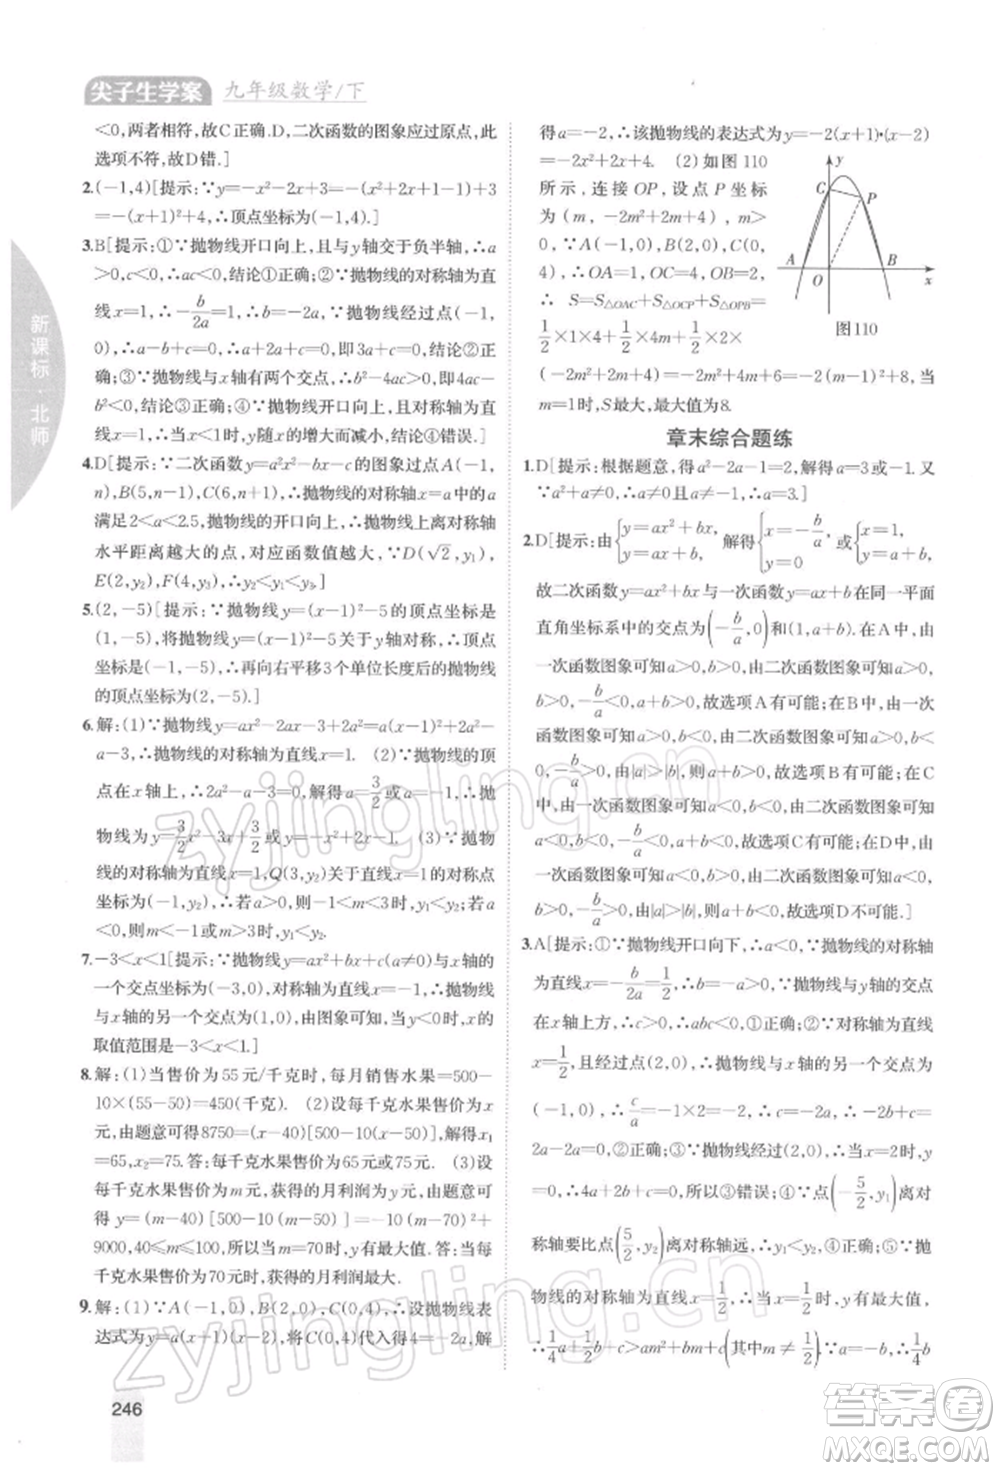 尖子生学案 九年级数学/下
<0,两者相符,故C正确.D,二次函数的图象应过原点,此
选项不符,故D错.]
2.(-1,4)[提示:∵y=-x²-2x+3=-(x²+2x+1-1)+3
=-(x+1)²+4,∴顶点坐标为(-1,4).]
3.B[提示:①∵抛物线开口向上,且与y轴交于负半轴,∴a
>0,c<0,∴ac<0,结论①正确;②∵抛物线的对称轴为直
线x=1,∴-b/2a=1,∴b=-2a.∵抛物线经过点(-1,
0),∴a-b+c=0,∴a+2a+c=0,即3a+c=0,结论②正
确;③∵抛物线与x轴有两个交点,∴b²-4ac>0,即4ac-
b²<0,结论③正确;④∵抛物线开口向上,且抛物线的对称
轴为直线x=1,∴当x<1时,y随x的增大而减小,∴当-1
<x<0时,y随x的增大而减小,结论④错误.]
4.D[提示:∵二次函数y=a²x²-bx-c的图象过点A(-1,
n),B(5,n-1),C(6,n+1),∴抛物线的对称轴直线x=a
满足2<a<2.5,抛物线的开口向上,∴抛物线上离对称轴
水平距离越大的点,对应函数值越大.∵D(√2,y₁),
E(2,y₂),F(4,y₃),∴y₂<y₁<y₃.]
5.(2,-5)[提示:∵抛物线y=(x-1)²-5的顶点坐标是
(1,-5),将抛物线y=(x-1)²-5关于y轴对称,∴顶点
坐标是(-1,-5),∴再向右平移3个单位长度后的抛物线
的顶点坐标为(2,-5).]
6.解:(1)∵抛物线y=ax²-2ax-3+2a²=a(x-1)²+2a²
-a-3,∴抛物线的对称轴为直线x=1. (2)∵抛物线的顶
点在x轴上,∴2a²-a-3=0,解得a=3/2或a=-1,∴抛
物线为y=3/2x²-3x+3/2或y=-x²+2x-1. (3)∵抛物
线的对称轴为直线x=1,∴Q(3,y₂)关于直线x=1的对称
点的坐标为(-1,y₂),∴若a>0,则当-1<m<3时,y₁<
y₂;若a<0,则当m<-1或m>3时,y₁<y₂.
7.-3<x<1[提示:∵抛物线的对称轴为直线x=-1,与x轴
的一个交点坐标为(-3,0),∴根据抛物线的对称性,抛物线
与x轴的另一个交点为(1,0),∴抛物线在x轴上方时,x的
取值范围是-3<x<1.]
8.解:(1)当售价为55元/千克时,每月销售水果=500-
10×(55-50)=450(千克). (2)设每千克水果售价为x
元,由题意可得8750=(x-40)[500-10(x-50)],解得x₁
=65,x₂=75.答:每千克水果售价为65元或75元. (3)设
每千克水果售价为m元,获得的月利润为y元,由题意可
得y=(m-40)[500-10(m-50)]=-10(m-70)²+
9000,∴当m=70时,y有最大值.答:当每
千克水果售价为70元时,获得的月利润最大.
9.解:(1)∵A(-1,0),B(2,0),C(0,4),∴设抛物线表
达式为y=a(x+1)(x-2),将C(0,4)代入得4=-2a,解
246
得a=-2,∴该抛物线的表达式为y=-2(x+1)·(x-2)
=-2x²+2x+4. (2)如图110
所示,连接OP,设点P坐标
为(m,-2m²+2m+4),m>
0,∵A(-1,0),B(2,0),C(0,
4),∴OA=1,OC=4,OB=2,
∴S=S△OAC+S△OCP+S△OPB=
1/2×1×4+1/2×4m+1/2×2×
(-2m²+2m+4)=-2m²+4m+6=-2(m-1)²+8,当
m=1时,S最大,最大值为8.
y
C
P
A
O
B
x
图110
章末综合题练
1.D[提示:根据题意,得a²-2a-1=2,解得a=3或-1.又
∵a²+a≠0,∴a≠0且a≠-1,∴a=3.]
2.D[提示:由{y=ax²+bx,y=ax+b,解得{x=-b/a,y=0或{x=1,y=a+b.
故二次函数y=ax²+bx与一次函数y=ax+b(a≠0)在同一平面
直角坐标系中的交点为(-b/a,0)和(1,a+b).在A中,由
一次函数图象可知a>0,b>0,由二次函数图象可知a>
0,b>0,-b/a<0,a+b>0,故选项A有可能;在B中,由一
次函数图象可知a>0,b<0,由二次函数图象可知a>0,b<
0,-b/a>0,由|a|>|b|,则a+b>0,故选项B有可能;在C
中,由一次函数图象可知a<0,b<0,由二次函数图象可知
a<0,b<0,-b/a<0,a+b<0,故选项C有可能;在D中,由一
次函数图象可知a<0,b>0,由二次函数图象可知a<0,b>
0,-b/a>0,由|a|>|b|,则a+b<0,故选项D不可能.]
3.A[提示:①∵抛物线开口向下,∴a<0,∵抛物线的对称轴
为直线x=-b/2a=1/2,∴b=-a>0,∵抛物线与y轴的交点
在x轴上方,∴c>0,∴abc<0,①正确;②∵对称轴为直线
x=1/2,且经过点(2,0),∴抛物线与x轴的另一个交点为
(-1,0),∴c/a=-1×2=-2,∴c=-2a,∴-2b+c=2a-
2a=0,∴②正确;③∵抛物线经过(2,0),∴当x=2时,y=
0,∴4a+2b+c=0,所以③错误;④∵点(-5/2,y₁)离对
称轴要比点(5/2,y₂)离对称轴远,∴y₁<y₂,④正确;⑤∵抛
物线的对称轴为直线x=1/2,∴当x=1/2时,y有最大值,
∴1/4a+1/2b+c>am²+bm+c(其中m≠1/2).∵a=-b,∴1/4
新课标·北师
zyjingling.cn
zyjingling.cn
答案圈
MXQE.COM